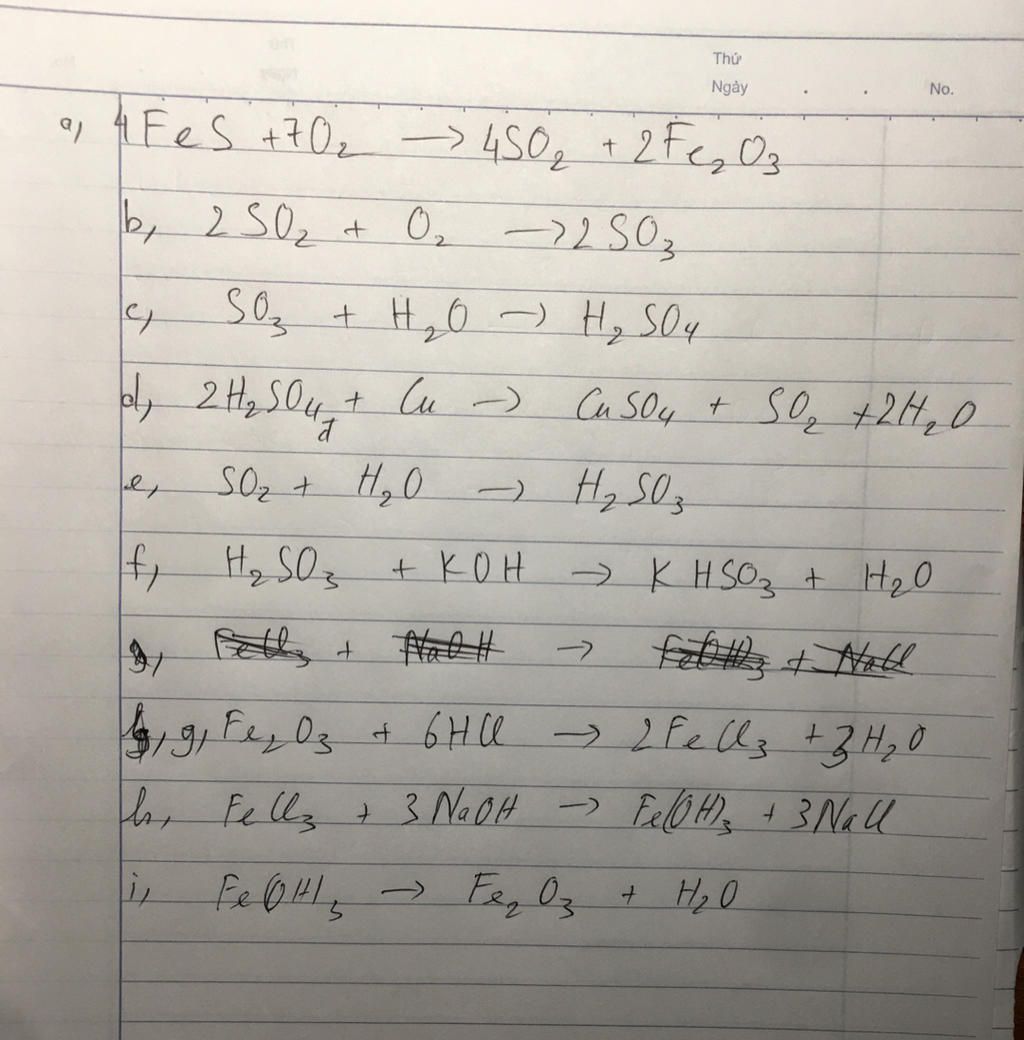 Thứ
Ngày . . No.
a, 4FeS + 7O₂ → 4SO₂ + 2Fe₂O₃
b, 2SO₂ + O₂ → 2SO₃
c, SO₃ + H₂O → H₂SO₄
d, 2H₂SO₄đ + Cu → CuSO₄ + SO₂ + 2H₂O
e, SO₂ + H₂O → H₂SO₃
f, H₂SO₃ + KOH → KHSO₃ + H₂O
g, FeCl₃ + NaOH → Fe(OH)₃ + NaCl
g, Fe₂O₃ + 6HCl → 2FeCl₃ + 3H₂O
h, FeCl₃ + 3NaOH → Fe(OH)₃ + 3NaCl
i, Fe(OH)₃ → Fe₂O₃ + H₂O